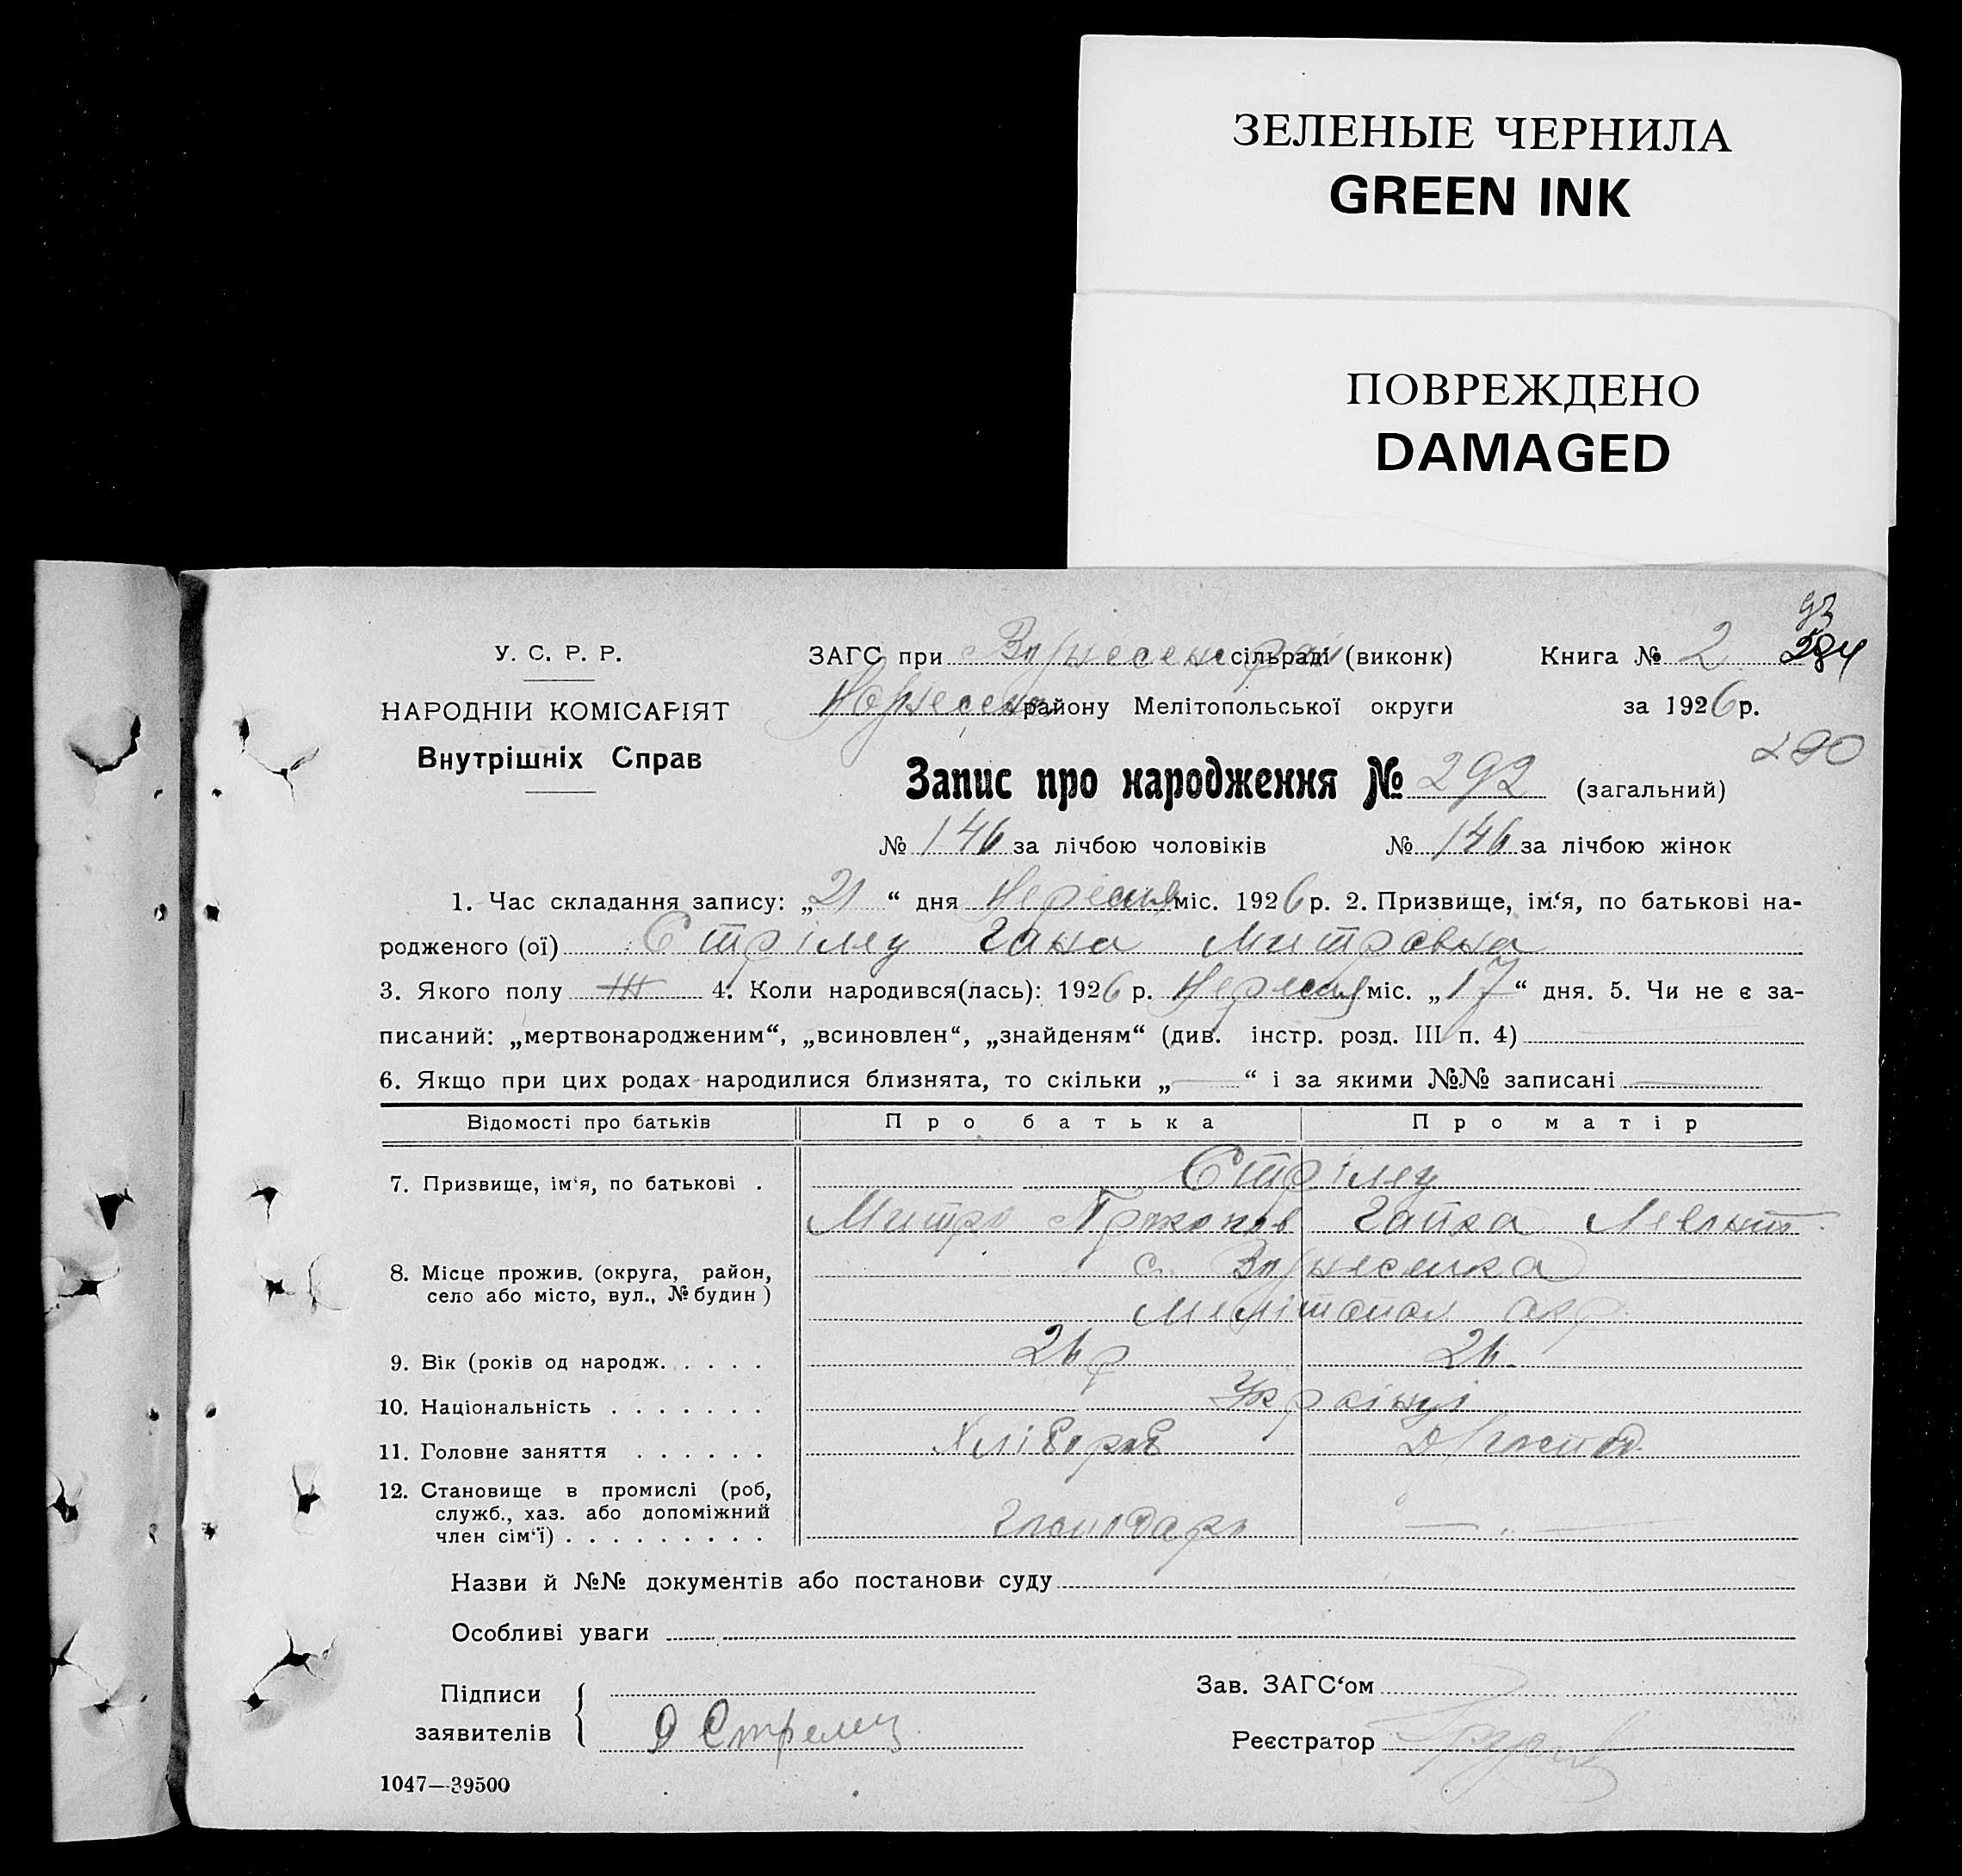 ЗЕЛЕНЫЕ ЧЕРНИЛА
GREEN INK
ПОВРЕЖДЕНО
DAMAGED
93
284
У. С. Р. Р.
НАРОДНІЙ КОМІСАРІЯТ
Внутрішніх Справ
ЗАГС при Вознесенс сільраді (виконк) Книга № 2
Вознесенс району Мелітопольської округи за 1926 р.
290
Запис про народження № 292 (загальний)
№ 146 за лічбою чоловіків № 146 за лічбою жінок
1. Час складання запису: „21“ дня Вересня міс. 1926 р. 2. Призвище, ім‘я, по батькові на-
родженого (ої) Стрілец Гана Митровна
3. Якого полу Ж 4. Коли народився(лась): 1926 р. Вересня міс. „17“ дня. 5. Чи не є за-
писаний: „мертвонародженим“, „всиновлен“, „знайденям“ (див. інстр. розд. III п. 4)
6. Якщо при цих родах народилися близнята, то скільки „—“ і за якими №№ записані —
Відомості про батьків Про батька Про матір
7. Призвище, ім‘я, по батькові . Стрілец
Митро Прокопов Гапка
8. Місце прожив. (округа, район, с. Вознесенка
село або місто, вул., № будин ) Мелітопол окр.
9. Вік (років од народж. . . . . 26 р 26.
10. Національність . . . . . . . Українці
11. Головне заняття . . . . . . Хлібороб Д/господ.
12. Становище в промислі (роб,
служб., хаз. або допоміжний
член сім‘ї) . . . . . . . . . Господарь — „ —
Назви й №№ документів або постанови суду
Особливі уваги
Підписи Зав. ЗАГС‘ом
заявителів Д Стрелец Реєстратор
1047—39500